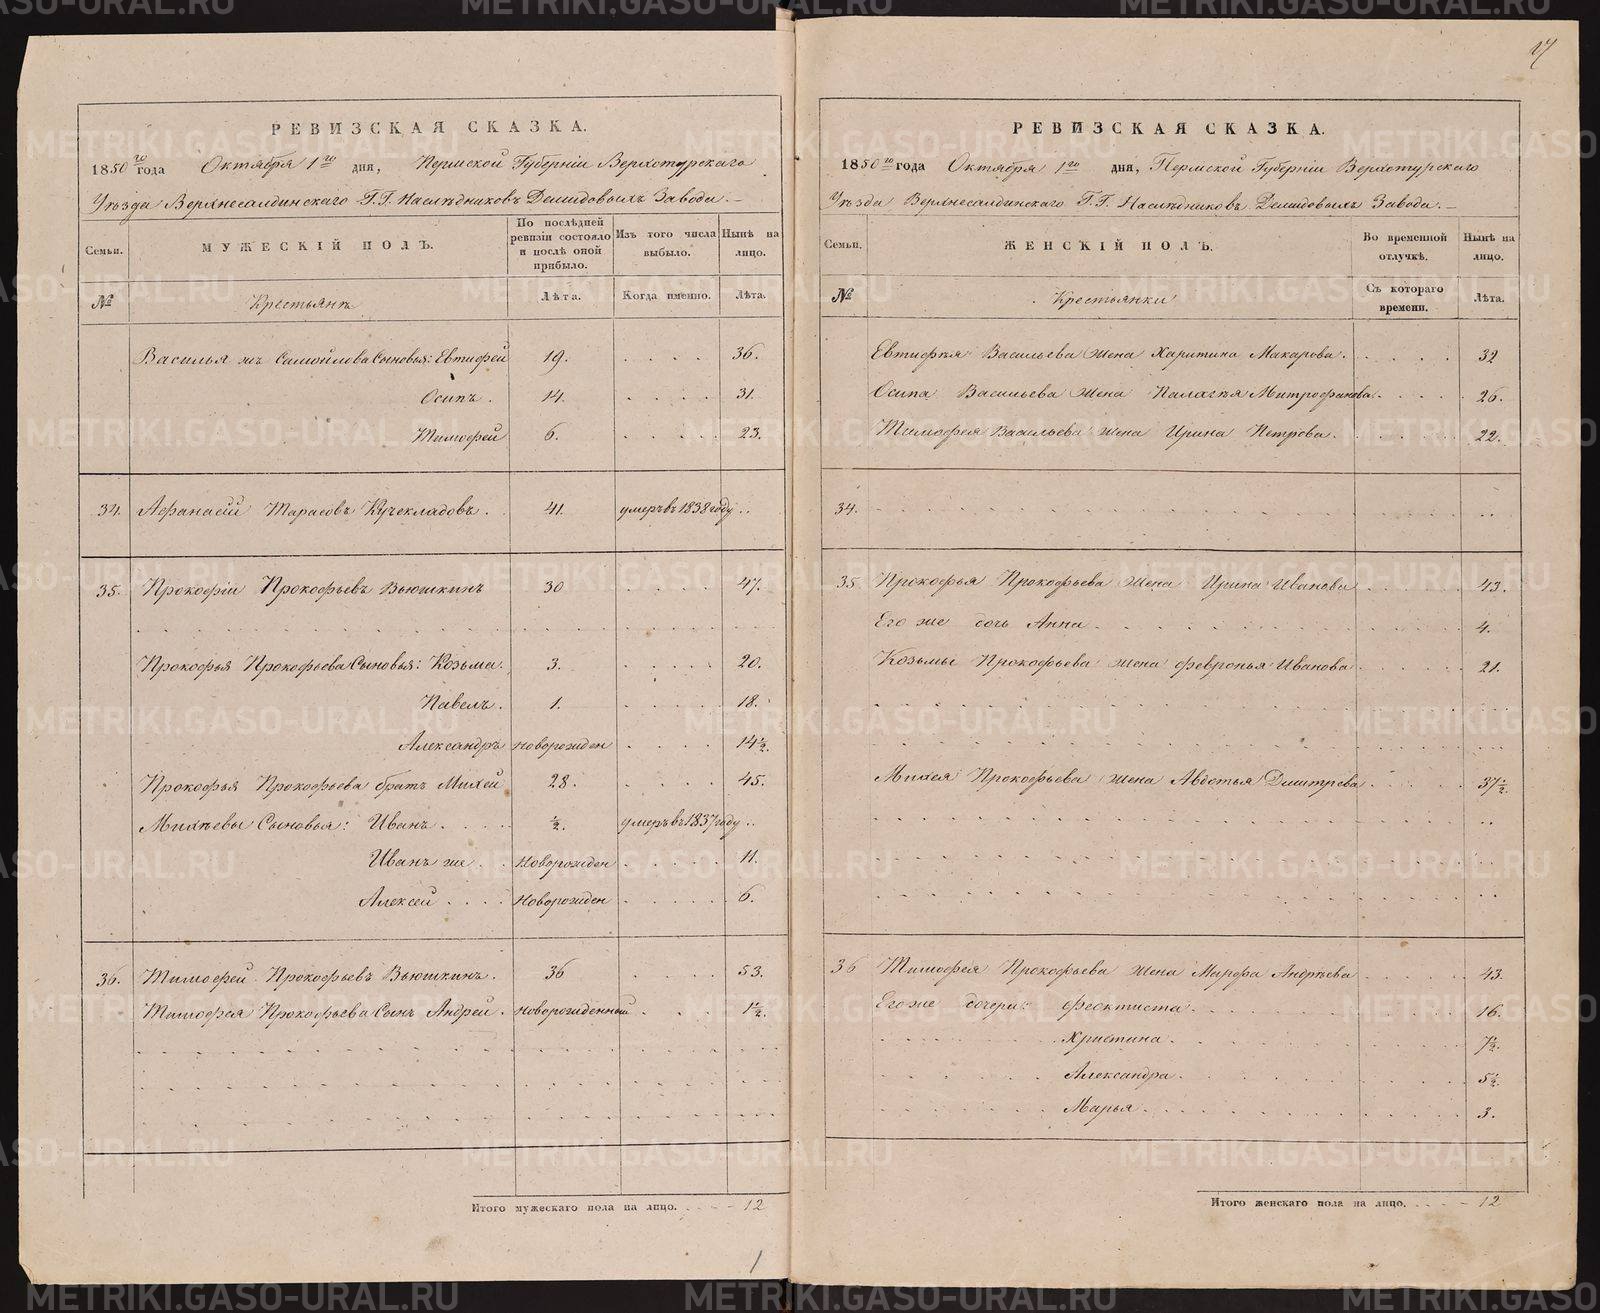 РЕВИЗСКАЯ СКАЗКА.
1850го года Октября 1го дня, Пермской Губернiи Верхотурскаго
Уѣзда Верхнесалдинскаго Г.Г. Наслѣдниковъ Демидовыхъ Завода.
Семьи.
МУЖЕСКIЙ ПОЛЪ.
По послѣдней ревизiи состояло и послѣ оной прибыло.
Изъ того числа выбыло.
Нынѣ на лицо.
№
Крестьянъ
Лѣта.
Когда именно.
Лѣта.
Василья жъ Самойлова Сыновья: Евтифей 19. 36.
Осипъ. 14. 31.
Тимофей 6. 23.
34. Афанасiй Тарасовъ Кучекладовъ. 41. умеръ въ 1838 году
35. Прокофiи Прокофьевъ Вьюшкинъ 30 47.
Прокофья Прокофьева Сыновья: Козьма. 3. 20.
Павелъ. 1. 18.
Александръ новорожден 14½.
Прокофья Прокофьева братъ Михей 28. 45.
Михѣевы Сыновья: Иванъ. ½. умеръ въ 1837 году
Иванъ же. Новорожден 11.
Алексей Новорожден 6.
36. Тимофей Прокофьевъ Вьюшкинъ. 36 53.
Тимофея Прокофьева Сынъ Андрей. новорожденный 1½.
Итого мужескаго пола на лицо. 12
17
РЕВИЗСКАЯ СКАЗКА.
1850го года Октября 1го дня, Пермской Губернiи Верхотурскаго
Уѣзда Верхнесалдинскаго Г.Г. Наслѣдниковъ Демидовыхъ Завода.
Семьи.
ЖЕНСКIЙ ПОЛЪ.
Во временной отлучкѣ.
Нынѣ на лицо.
№
Крестьянки
Съ котораго времени.
Лѣта.
Евтифѣя Васильева Жена Харитина Макарова. 32
Осипа Васильева Жена Палагѣя Митрофанова. 26.
Тимофея Васильева жена Ирина Петрова. 22.
34.
35. Прокофья Прокофьева Жена Ирина Иванова 43.
Его же дочь Анна. 4.
Козьмы Прокофьева жена февронья Иванова 21.
Михея Прокофьева жена Авдотья Дмитрева 37½.
36 Тимофея Прокофьева жена Марфа Андрѣева 43.
Его же дочери: феоктиста 16.
Христина. 7½.
Александра. 5½
Марья. 3.
Итого женскаго пола на лицо. 12
METRIKI.GASO-URAL.RU